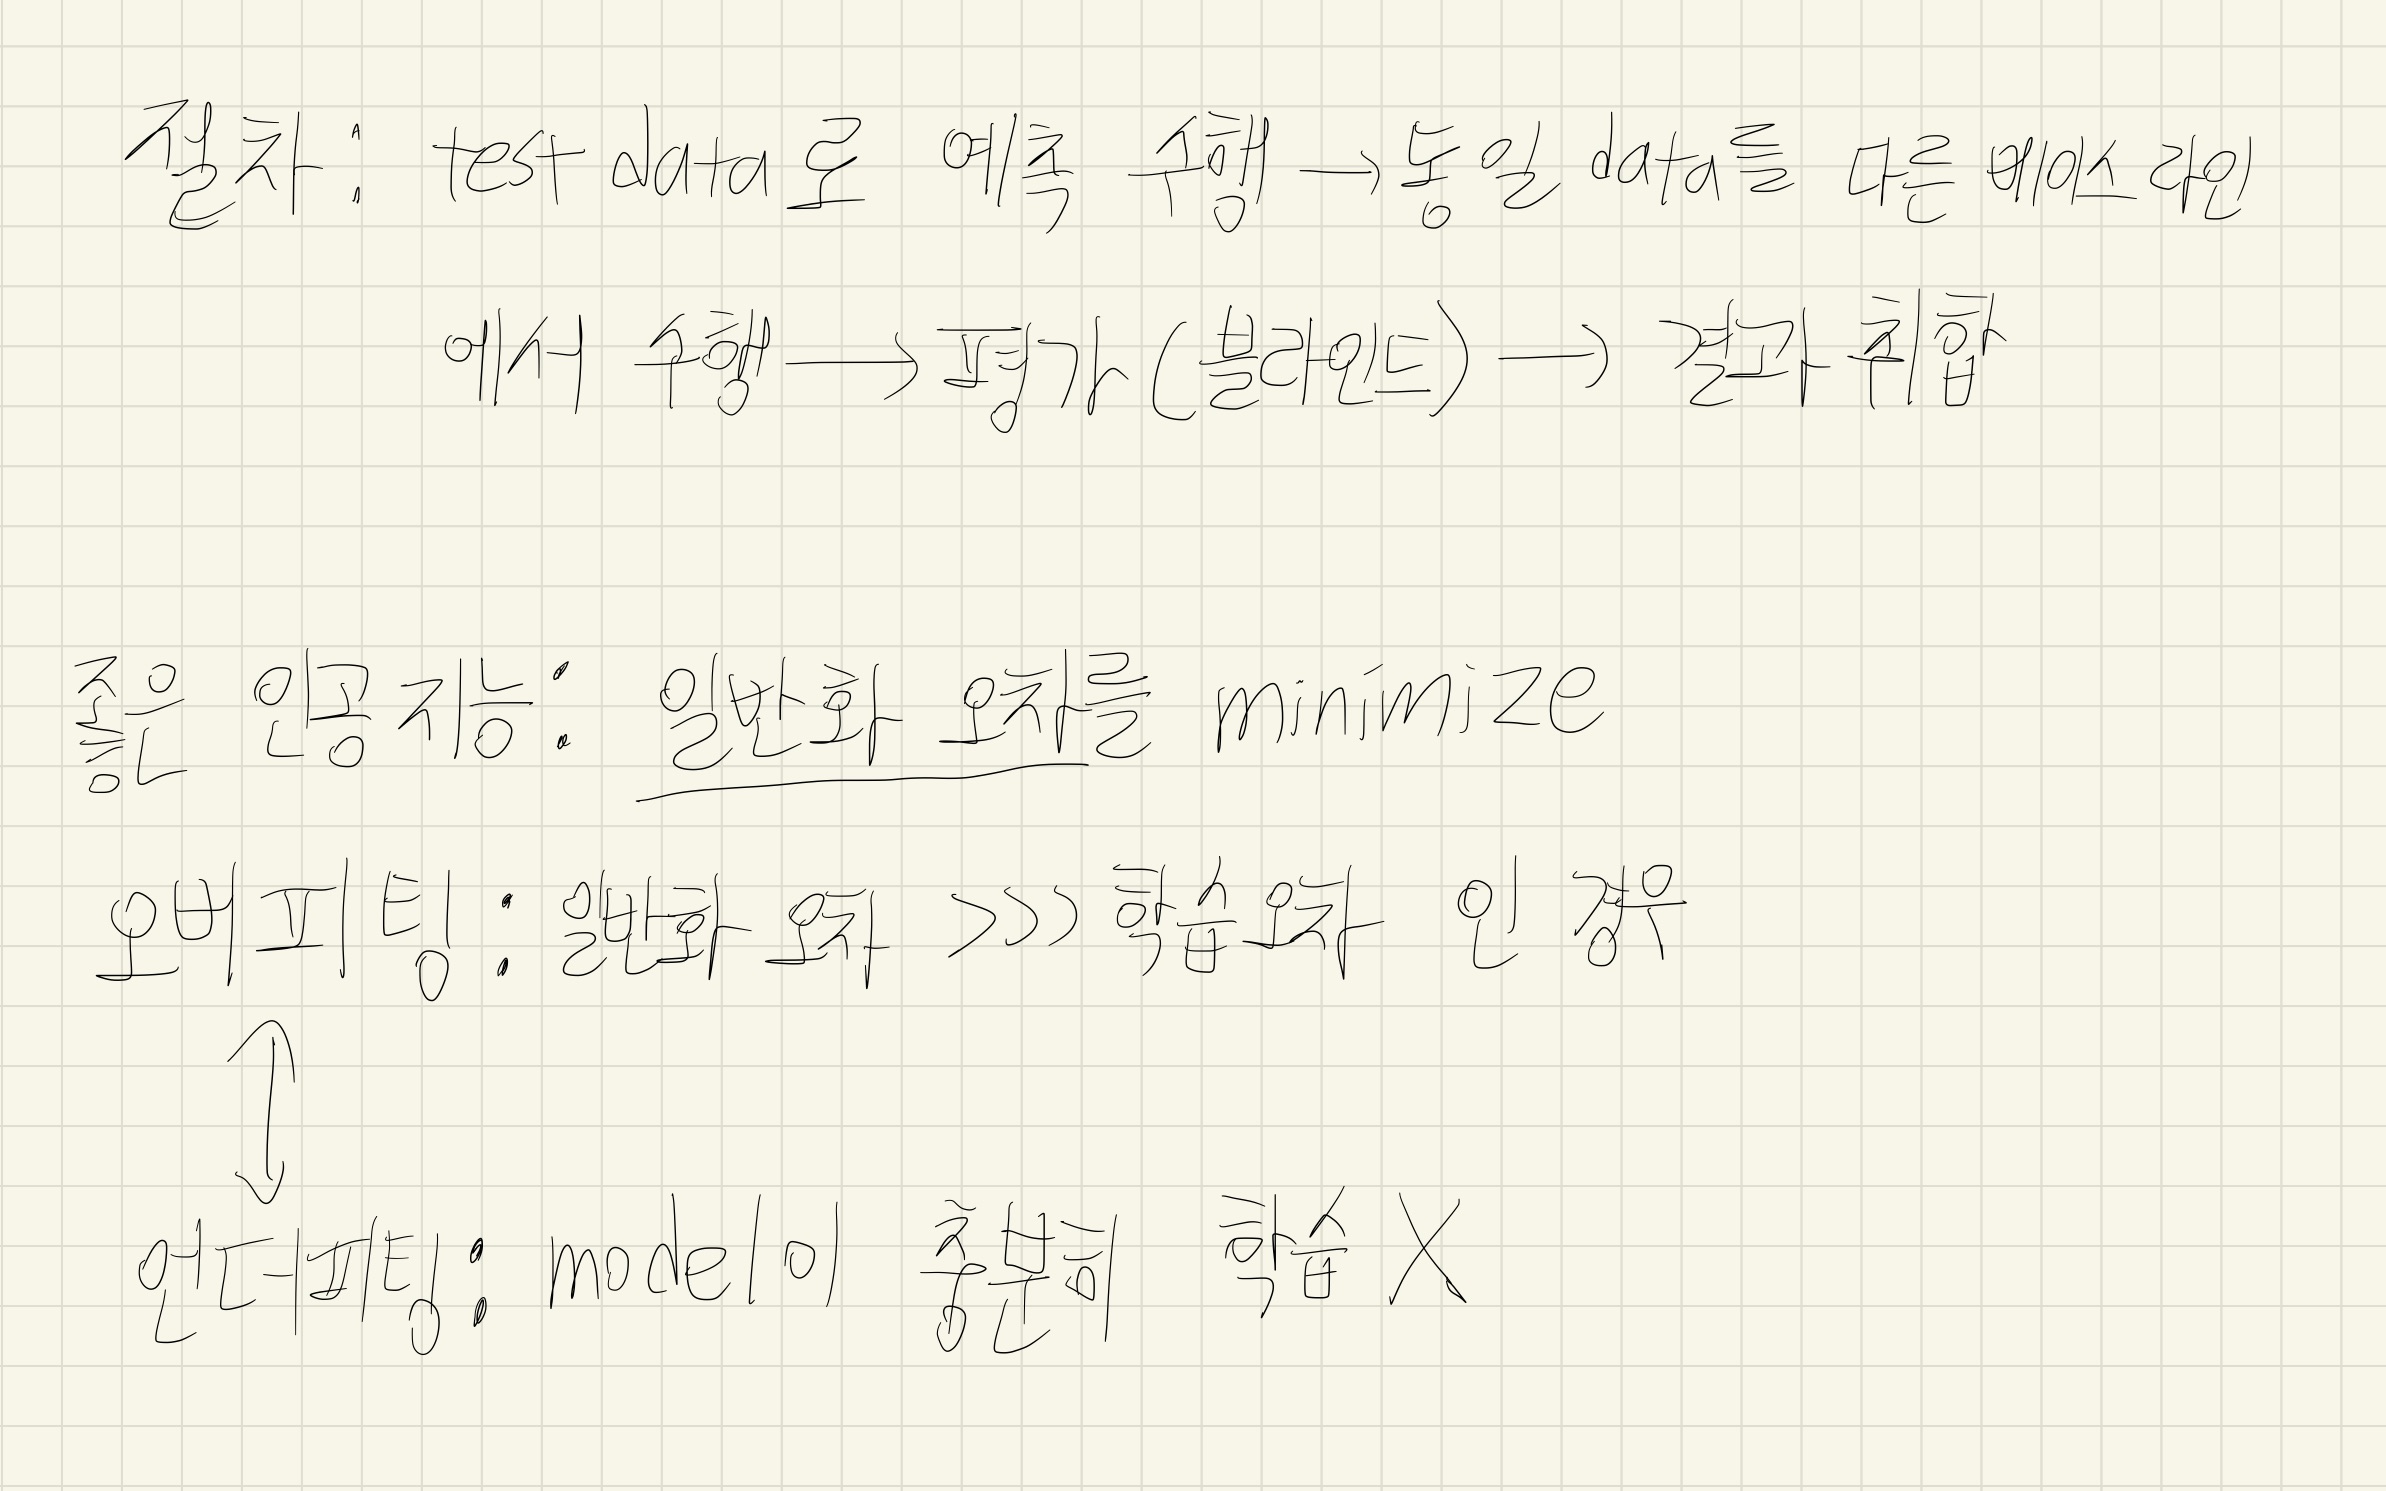 절차: test data로 예측 수행 → 동일 data를 다른 베이스라인
에서 수행 → 평가 (블라인드) → 결과 취합
좋은 인공지능: 일반화 오차를 minimize
오버피팅: 일반화 오차 >>> 학습오차 인 경우
언더피팅: model이 충분히 학습 X